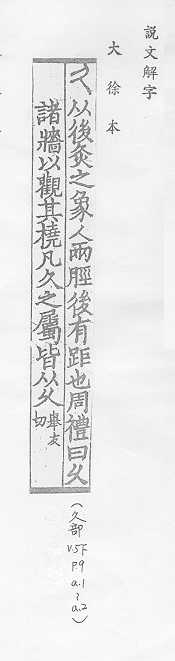 說文解字
大徐本
久 从後灸之象人兩脛後有距也周禮曰久
諸牆以觀其橈凡久之屬皆从久舉友切
(久部
V5下
P9
a.1
~
a.2)